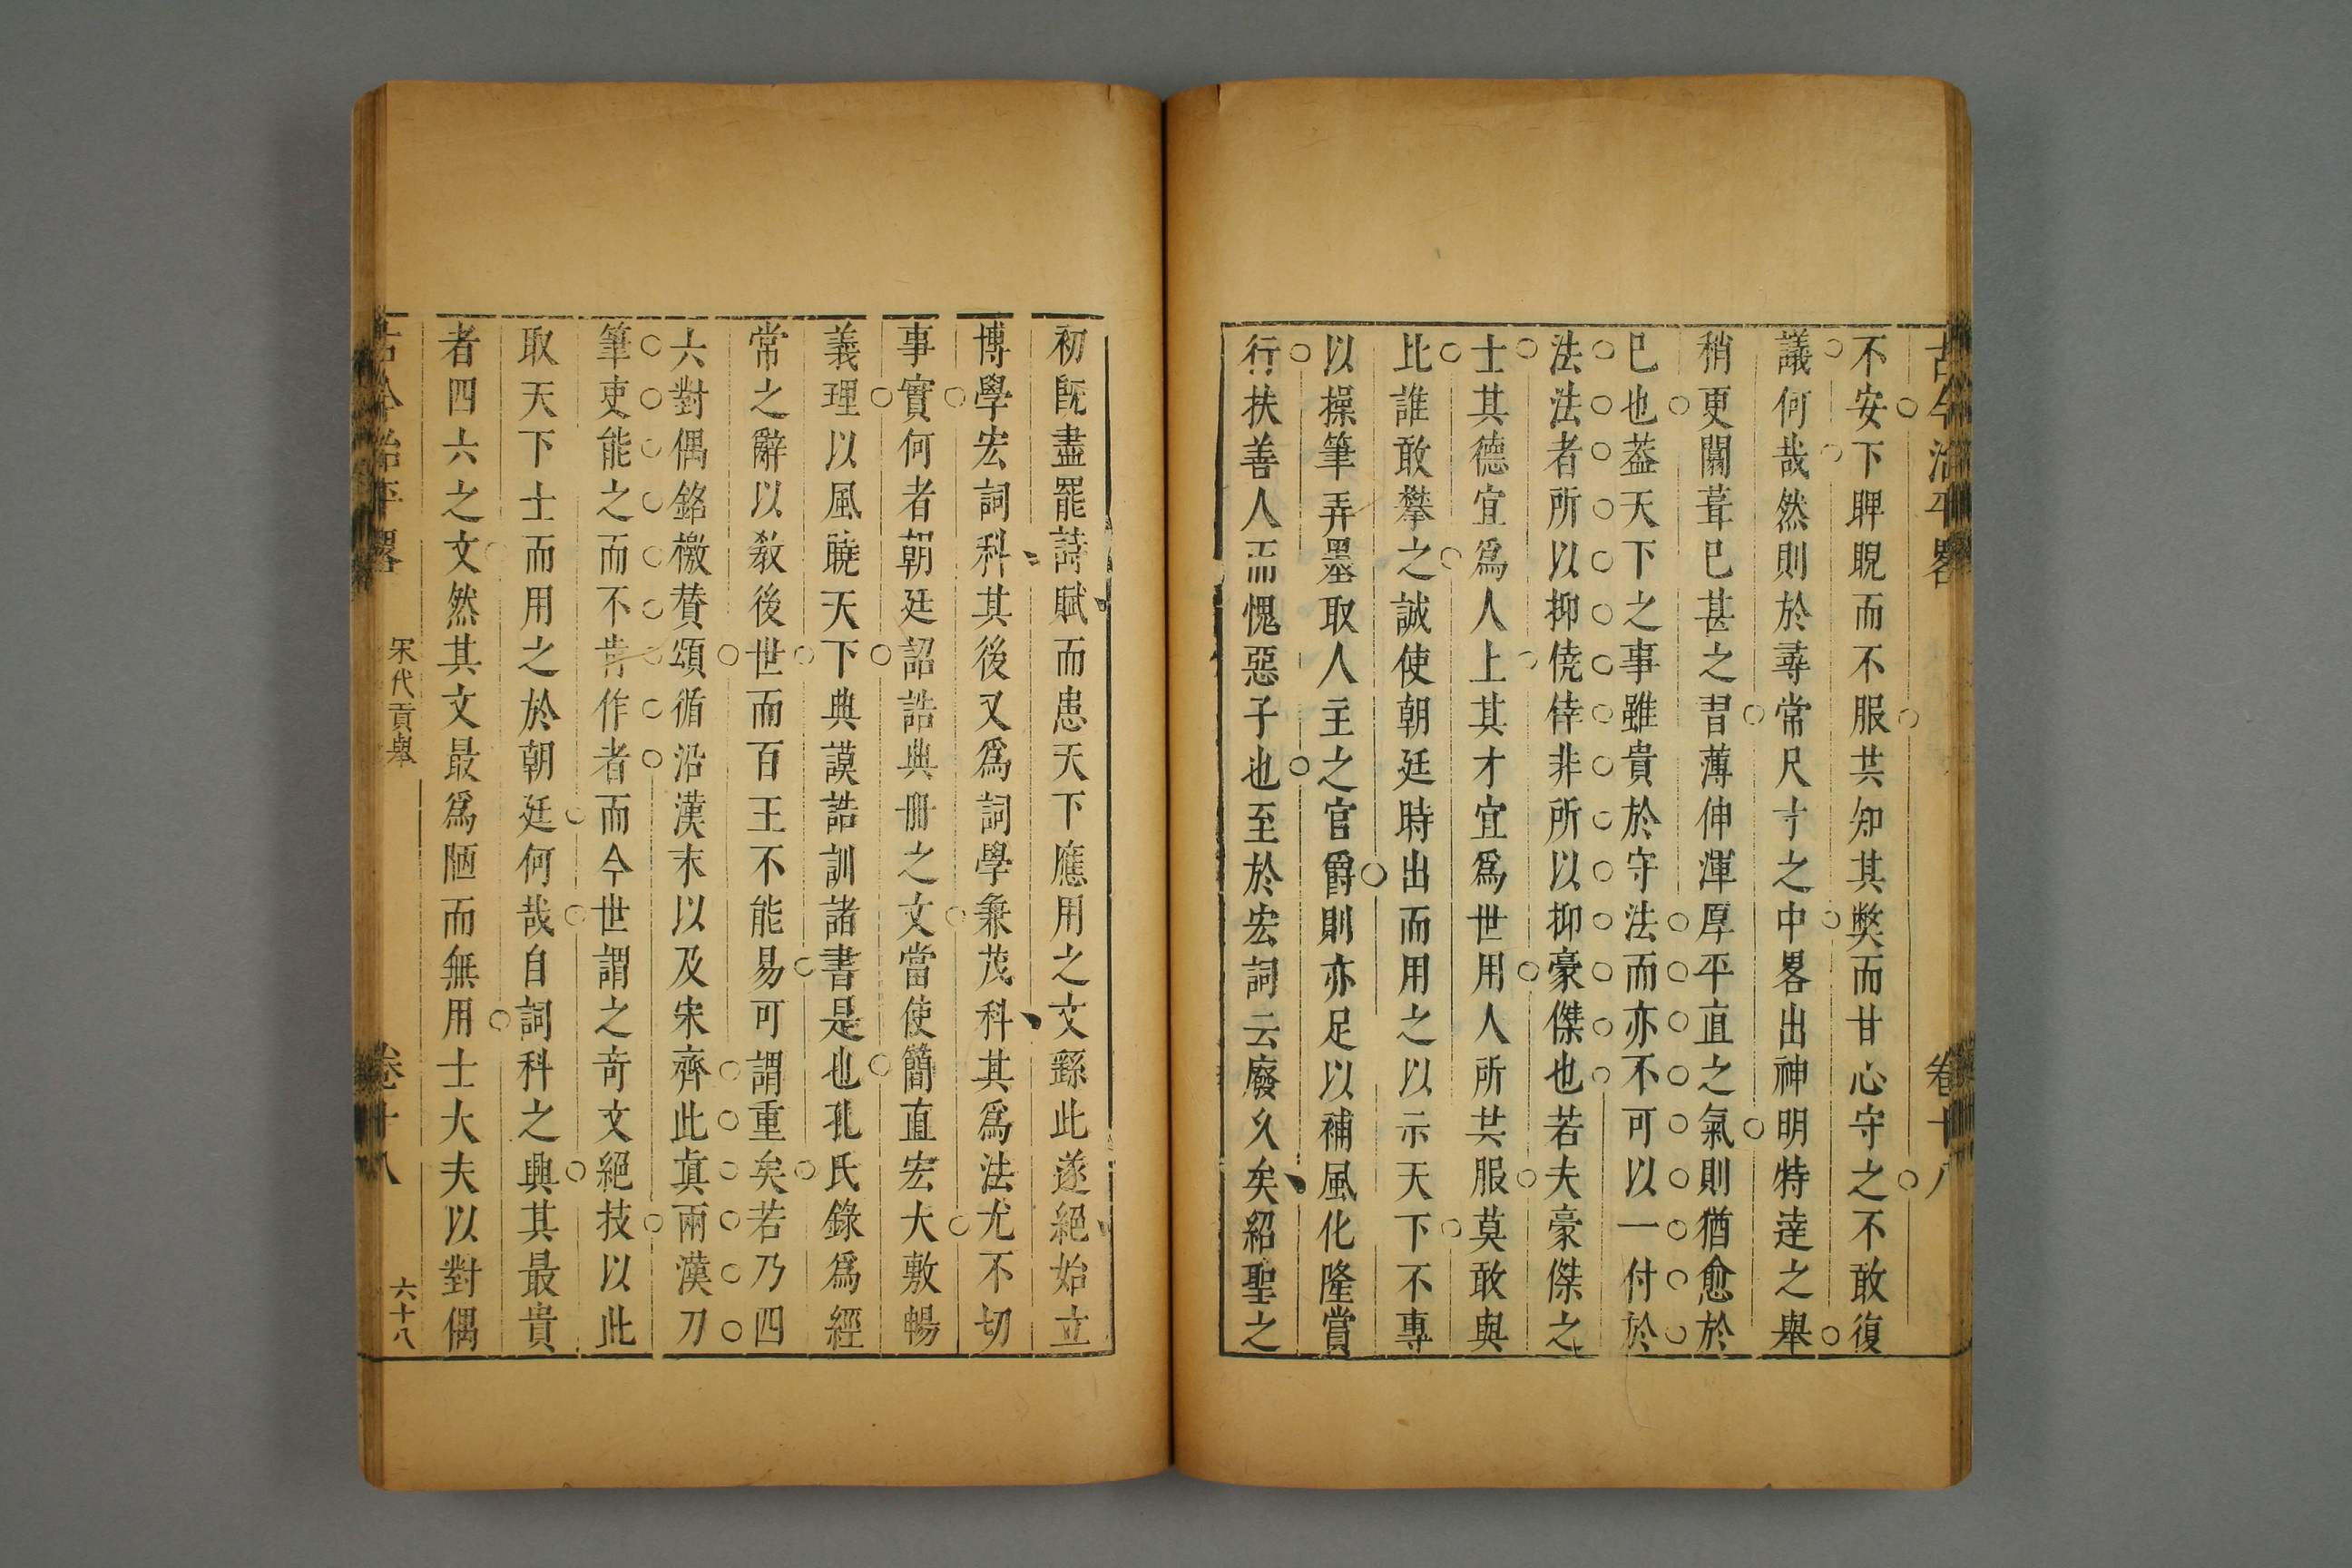 古今治平畧 卷十八
不安下睥睨而不服共知其獘而甘心守之不敢復
議何哉然則於尋常尺寸之中畧出神明特達之舉
稍更闒茸已甚之習薄伸渾厚平直之氣則猶愈於
已也葢天下之事雖貴於守法而亦不可以一付於
法法者所以抑僥倖非所以抑豪傑也若夫豪傑之
士其德宜爲人上其才宜爲世用人所共服莫敢與
比誰敢攀之誠使朝廷時出而用之以示天下不專
以操筆弄墨取人主之官爵則亦足以補風化隆賞
行扶善人而愧惡子也至於宏詞云廢久矣紹聖之
初旣盡罷詩賦而患天下應用之文繇此遂絕始立
博學宏詞科其後又爲詞學兼茂科其爲法尤不切
事實何者朝廷詔誥典冊之文當使簡直宏大敷暢
義理以風曉天下典謨誥訓諸書是也孔氏錄爲經
常之辭以敎後世而百王不能易可謂重矣若乃四
六對偶銘檄贊頌循沿漢末以及宋齊此眞兩漢刀
筆吏能之而不肯作者而今世謂之奇文絕技以此
取天下士而用之於朝廷何哉自詞科之興其最貴
者四六之文然其文最爲陋而無用士大夫以對偶
古今治平畧 宋代貢舉 卷十八 六十八